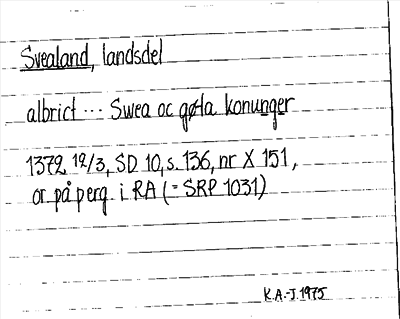 Svealand, landsdel
albrict ... Swea oc gøta konunger
1372 12/3, SD 10, s. 136, nr X 151,
or. på perg. i RA (= SRP 1031)
K.A.-J. 1975